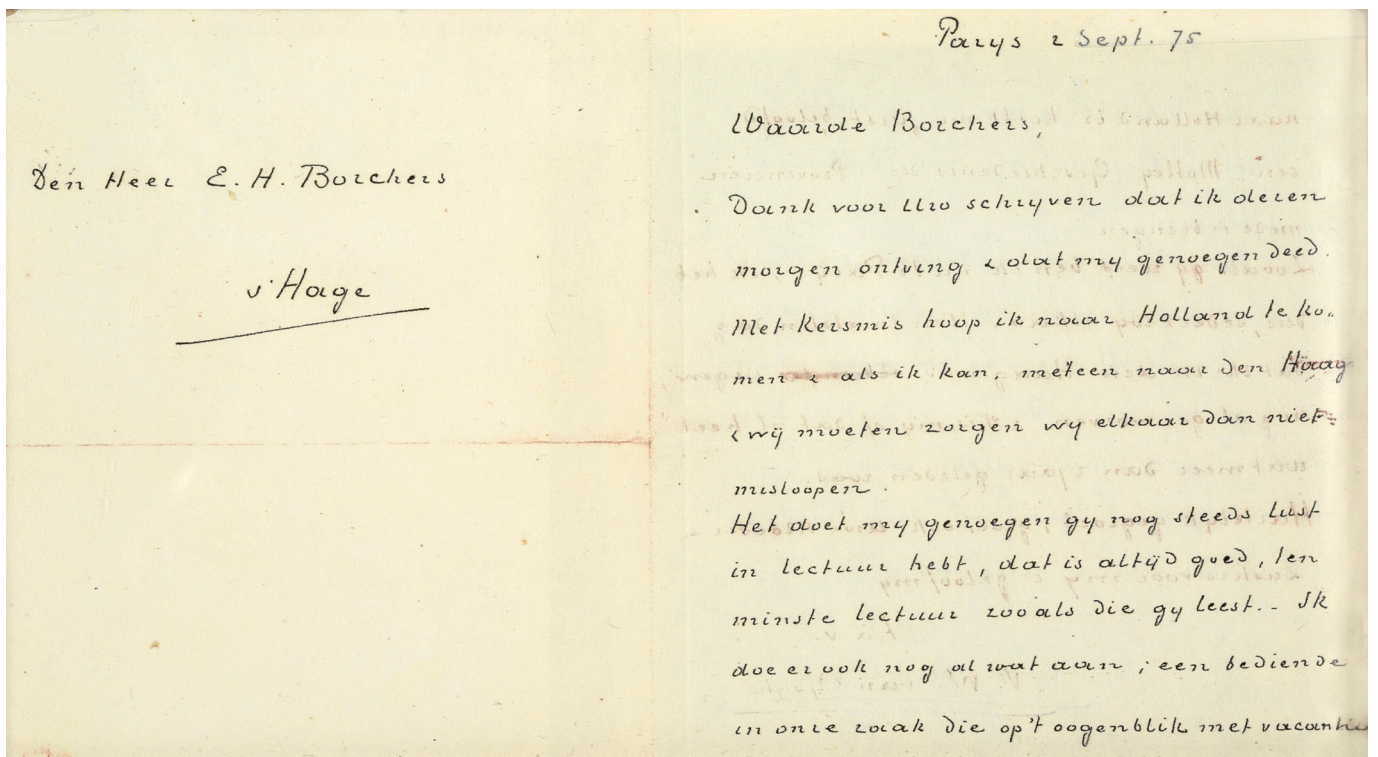 Den Heer E. H. Borchers
s'Hage
Parys 2 Sept. 75
Waarde Borchers,
Dank voor Uw schryven dat ik dezen
morgen ontving & dat my genoegen deed.
Met Kersmis hoop ik naar Holland te ko„
men & als ik kan, meteen naar den Haag
& wij moeten zorgen wy elkaar dan niet
misloopen.
Het doet my genoegen gy nog steeds lust
in lectuur hebt, dat is altijd goed, ten
minste lectuur zooals die gy leest. - Ik
doe er ook nog al wat aan; een bediende
in onze zaak die op't oogenblik met vacantie